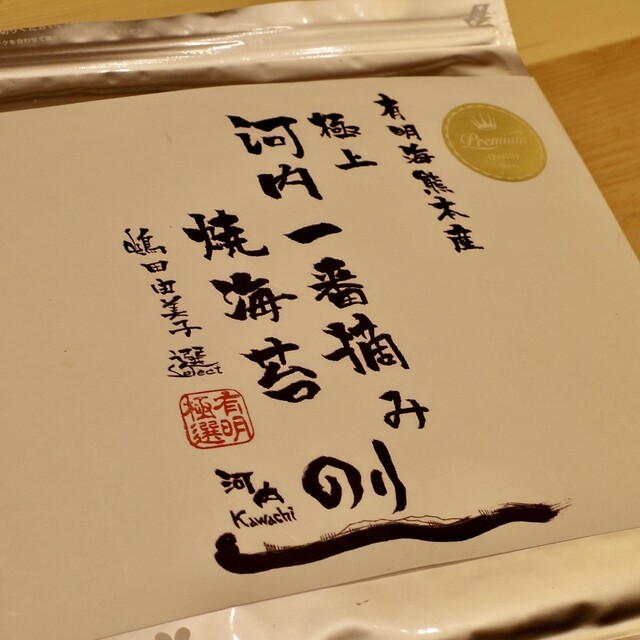 有明海熊本産
極上
河内一番摘み
焼海苔
嶋田由美子選
Select
有明
極選
のり
河内
Kawachi
Premium
Quality